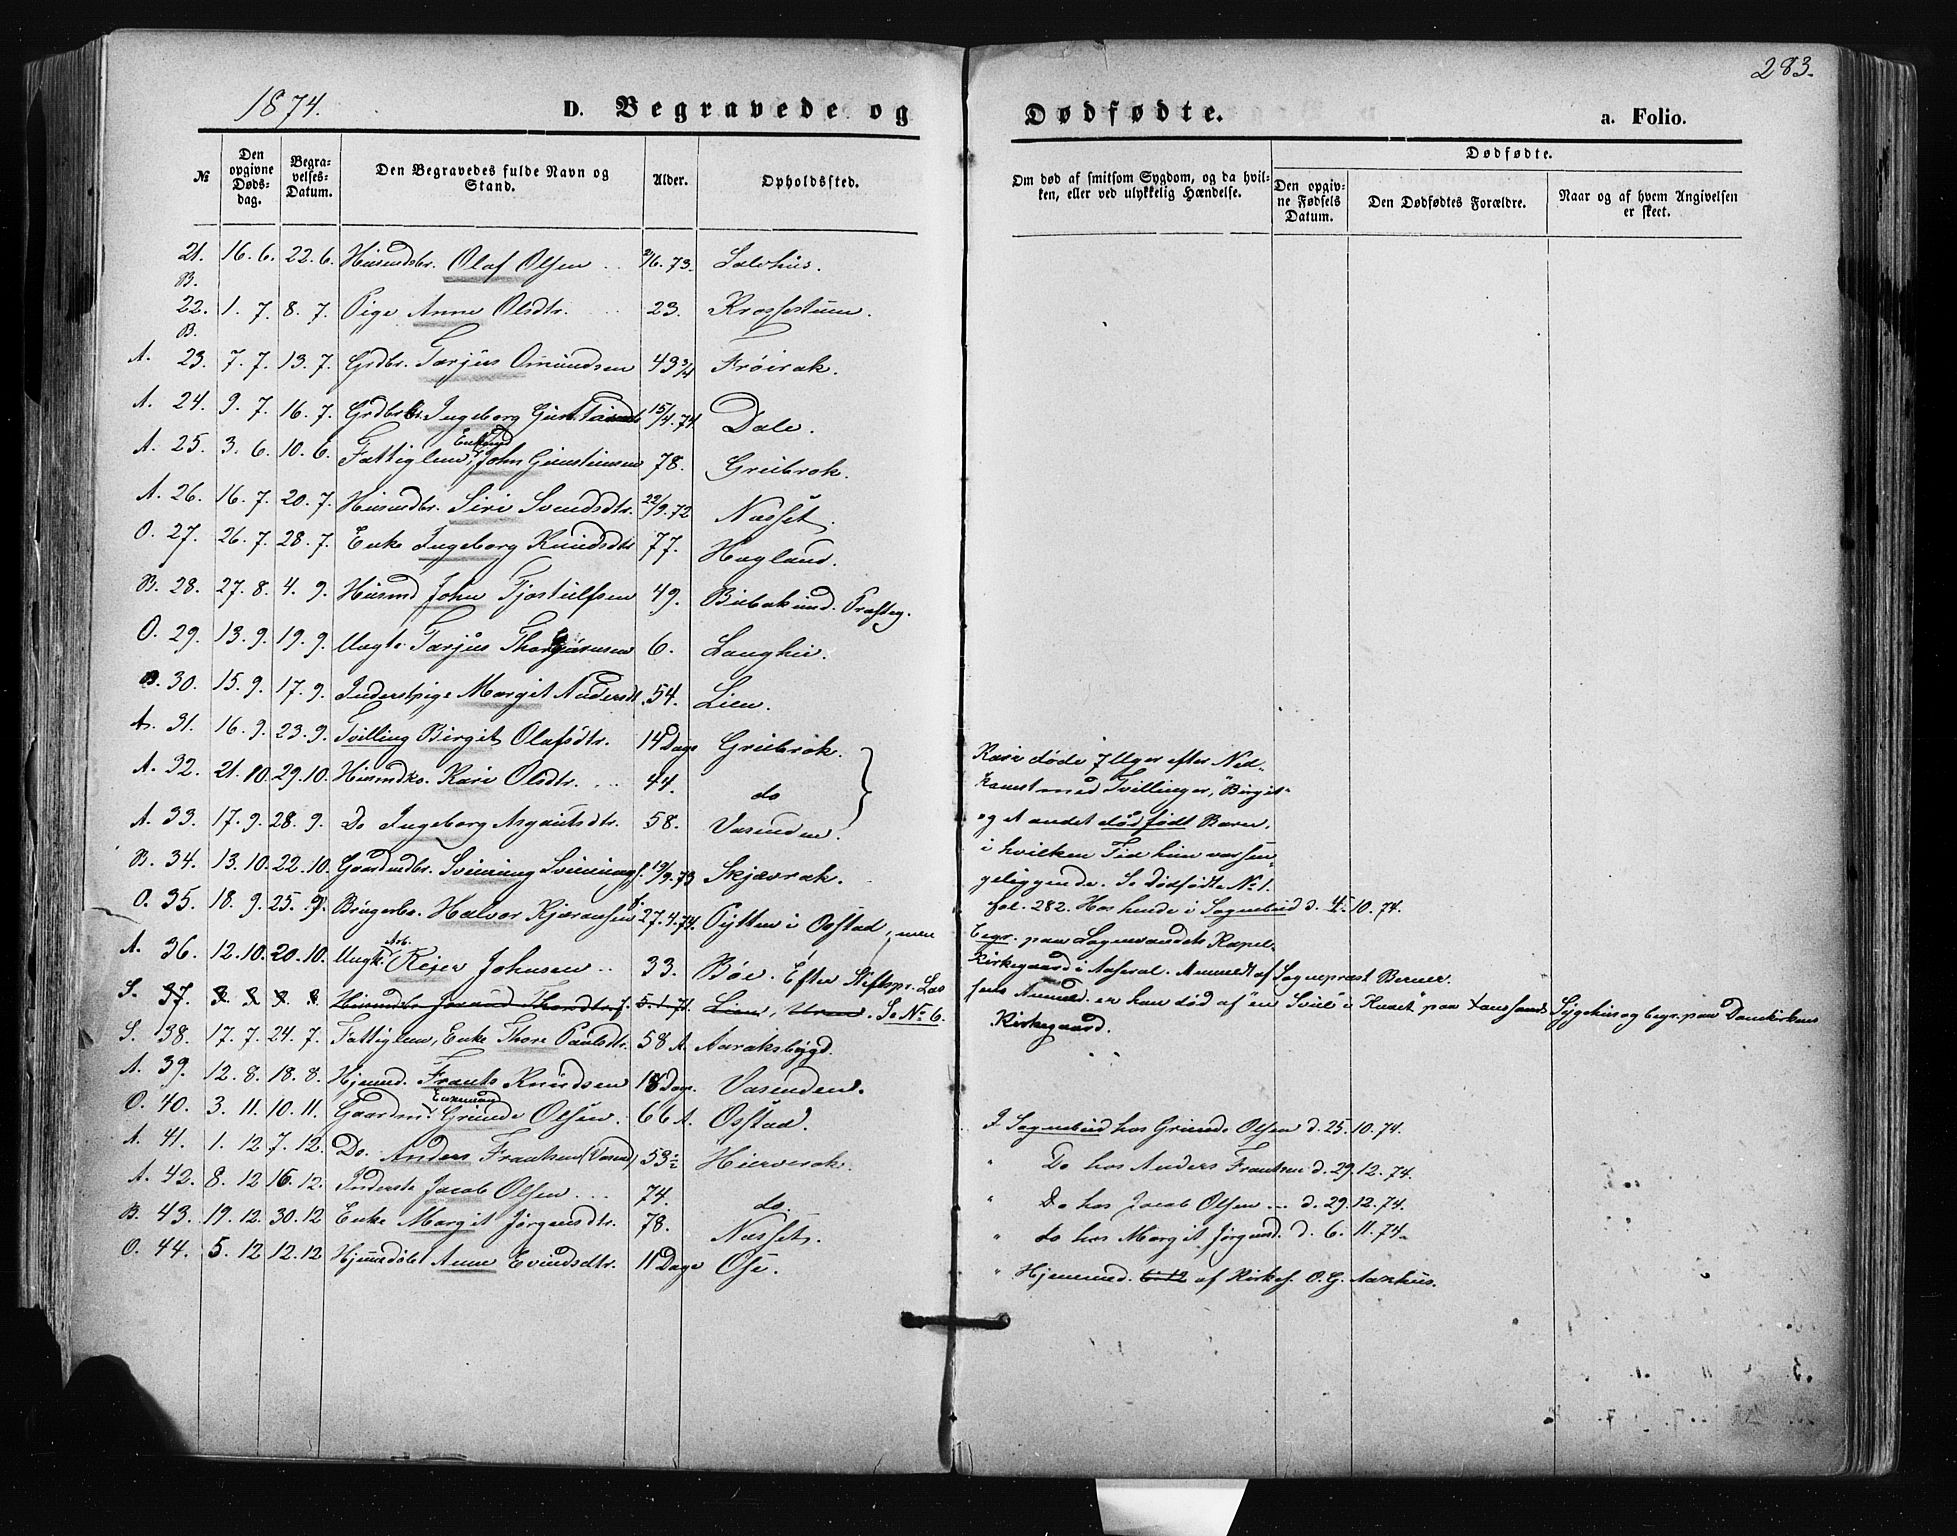 283.
1874.
D. Begravede og Dødfødte. a. Folio.
№
Den opgivne Dødsdag.
Begravelses-Datum.
Den Begravedes fulde Navn og Stand.
Alder.
Opholdssted.
Om død af smitsom Sygdom, og da hvilken, eller ved ulykkelig Hændelse.
Dødfødte.
Den opgivne Fødsels Datum.
Den Dødfødtes Forældre.
Naar og af hvem Angivelsen er skeet.
21. 16. 6. 22. 6. Husmdsbr. Olaf Olsen 73.
B.
22. 1. 7. 8. 7. Pige Anne Olsdtr. 23.
B.
A. 23. 7. 7. 13. 7. Grdbr. Tarjus Omundsen 43 3/4 Frøirak.
A. 24. 9. 7. 16. 7. Ingeborg 15/4.74 Dale.
Enkemd
A. 25. 3. 6. 10. 6. Fattiglem, John 78. Greibrok.
A. 26. 16. 7. 20. 7. Husmdbr. Siri Svendsdtr. 22/9.72 Nasset.
O. 27. 26. 7. 28. 7. Enke Ingeborg Knudsdtr 77. Hagland.
B. 28. 27. 8. 4. 9. Husmd John Fjostulfsen 49.
O. 29. 13. 9. 19. 9. Ungk. Tarjus 6. Langhei.
B. 30. 15. 9. 17. 9. Inderstpige Margit Andersdt. 54. Lien.
A. 31. 16. 9. 23. 9. Tvilling Birgit Olafsdtr. 14 Dage Greibrok.
A. 32. 21. 10. 29. 10. Husmdko. Kari Olsdtr. 44. do
A. 33. 17. 9. 28. 9. Do Ingeborg Asgautsdtr. 58. Vasenden.
B. 34. 13. 10. 22. 10. Gaardmdbr. Svinung Svinungs. 19/9.73 Skjævrak.
O. 35. 18. 9. 25. 9. Brugerbr. Halvor Kjæransen 27.4.74. Pytten i Osstad, men
A. 36. 12. 10. 20. 10. Ungk. Reier Johnsen 33. Bøe. Efter
S. 37. 5.1.71. Lien, So No 6.
S. 38. 17. 7. 24. 7. Fattiglem, Enke Thore Paulsdtr. 58 A. Aaraksbygd.
A. 39. 12. 8. 18. 8. Hjemd. Frants Knudsen 18 Dage Vasenden.
Enkemand
O. 40. 3. 11. 10. 11. Gaardm. Grunde Olsen. 66 A. Osstad.
A. 41. 1. 12 7. 12. Do. Anders Frantsen 53 1/2
A. 42. 8. 12 16. 12. Inderste Jacob Olsen 74. do.
B. 43. 19. 12. 30. 12 Enke Margit Jørgensdtr. 78. Nasset.
O. 44. 5. 12 12. 12 Hjemdøbt Anne Evindsdtr. 11 Dage Ose.
Kari døde 7 Uger efter Ned-
komst med Tvillinger, "Birgit"
og et andet dødfødt Barn,
i hvilken Tid hun var sen-
geliggende. Se Dødfødte No 1.
fol. 282. Hos hende i Sognebud d. 4.10.74.
Begr. paa Logenvandets Kapel-
Kirkegaard i Aaseral. Anmeldt af Sogneprest Berner.
er han død af "en i Knæet" paa Sygehus og begr. paa
Kirkegaard.
I Sognebud hos Grunde Olsen d. 25.10.74.
" Do hos Anders Frantsen d. 29.12.74.
" Do hos Jacob Olsen ... d. 29.12.74.
" do hos Margit Jørgensd. d. 6.11.74.
" Hjemmed. 6.12 af Kirkes. O. G. Aarhus.